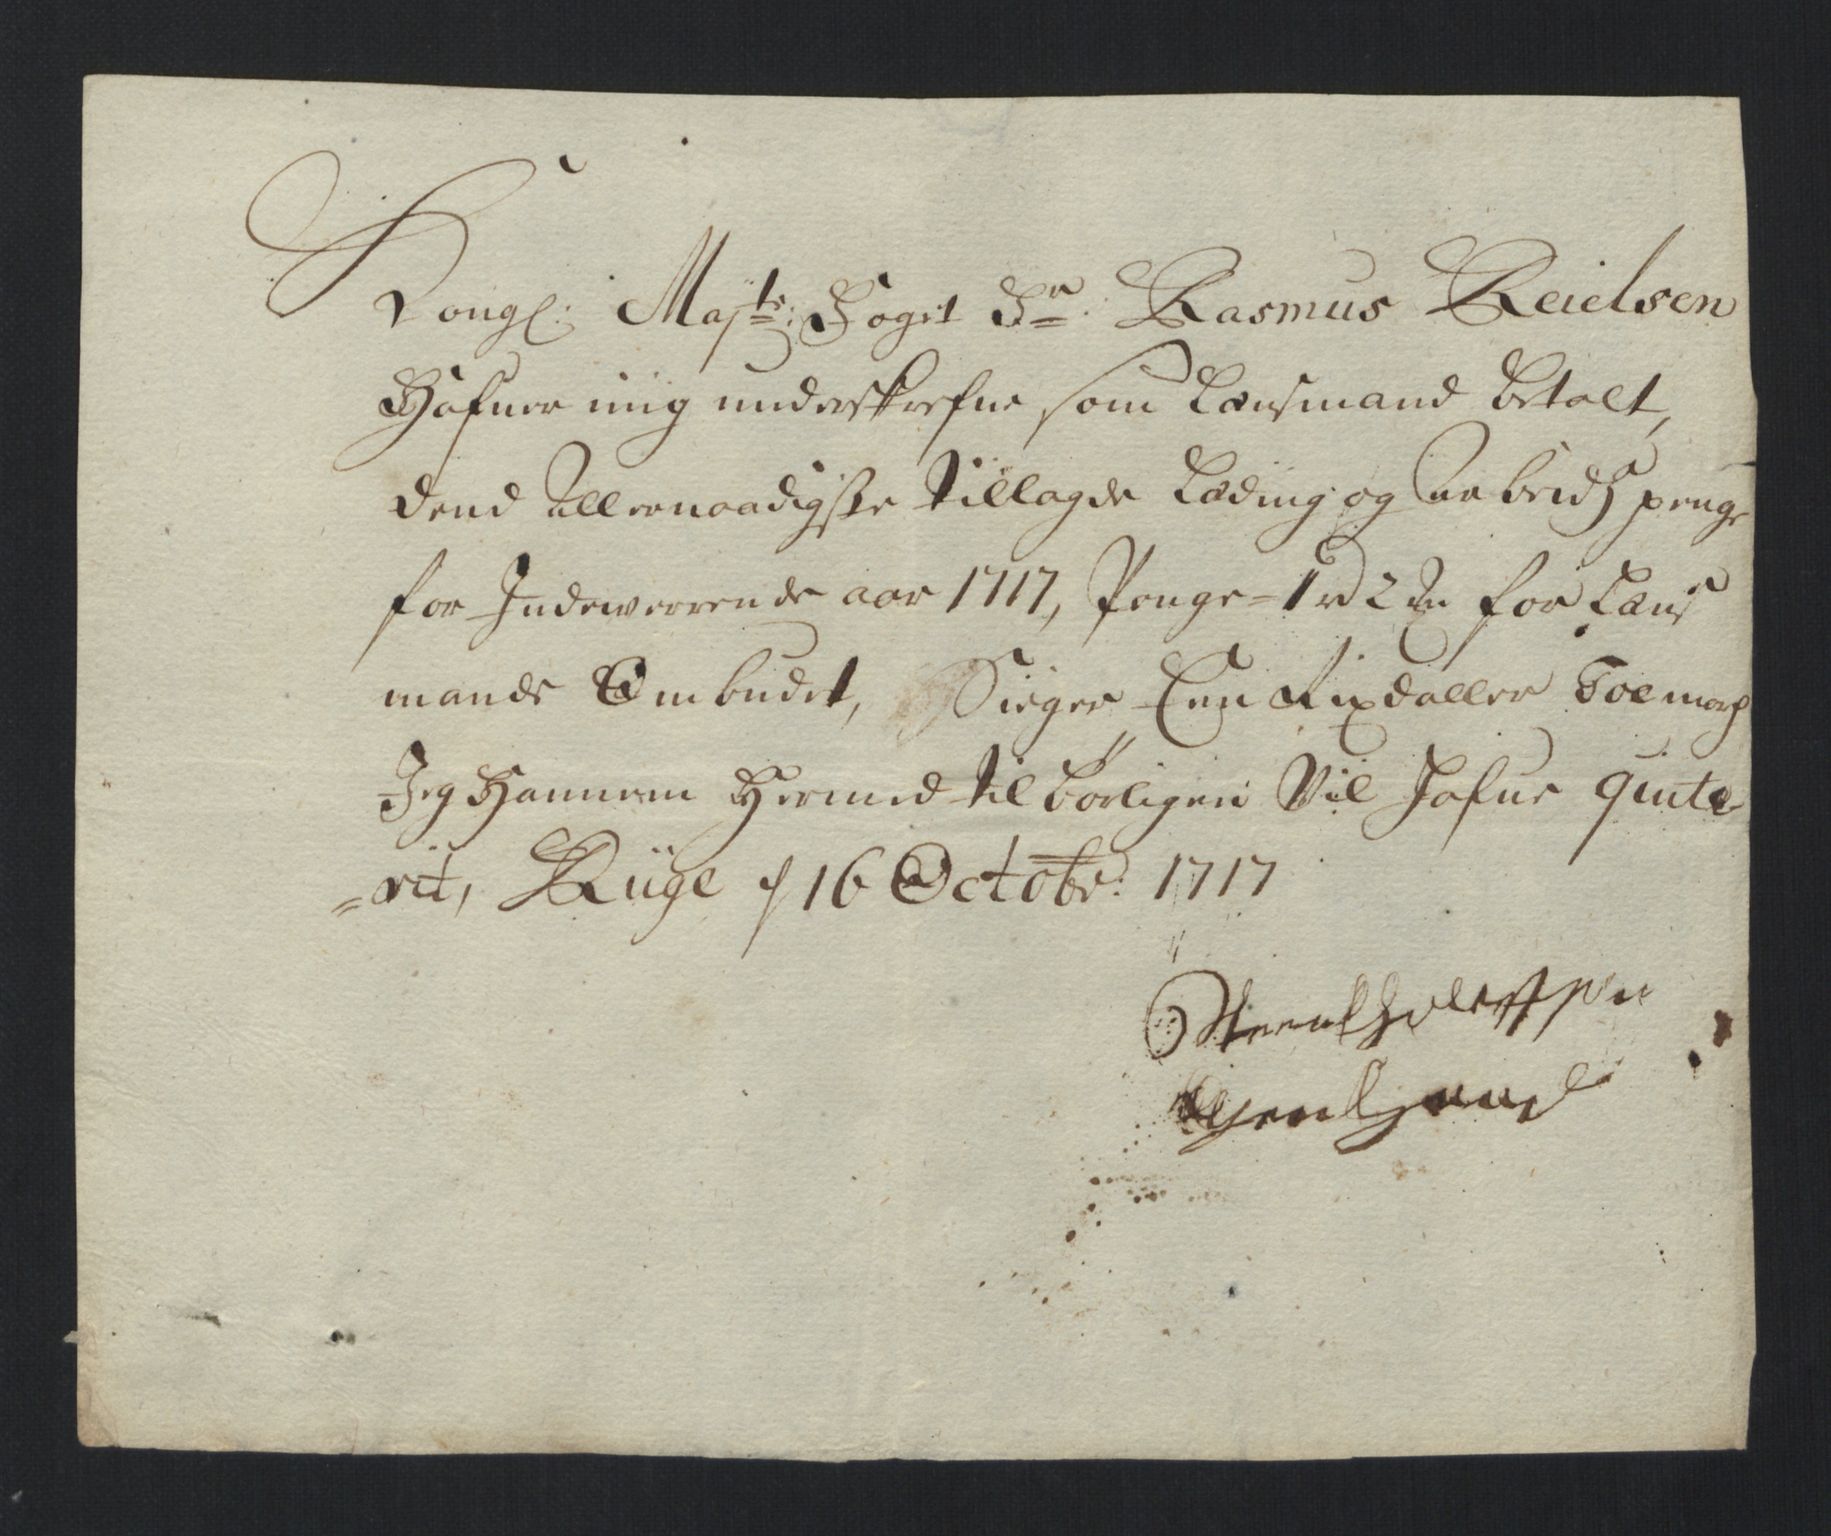 Kongl: Maÿts: Foget Sr: Rasmus Keielsen
Hafuer mig underskrefne som Lensmand betalt,
dend Allernaadigste tillagde Leding og Arbeids penge
for Indewerrende aar 1717, Penge = 1 rd 2 for Lens
mands Ombudet, Siger Een Rixdaller Toe mark
Jeg Hannem Hermed tilbørligen Vil hafue quite-
=rit, Rüge d 16 Octobr: 1717